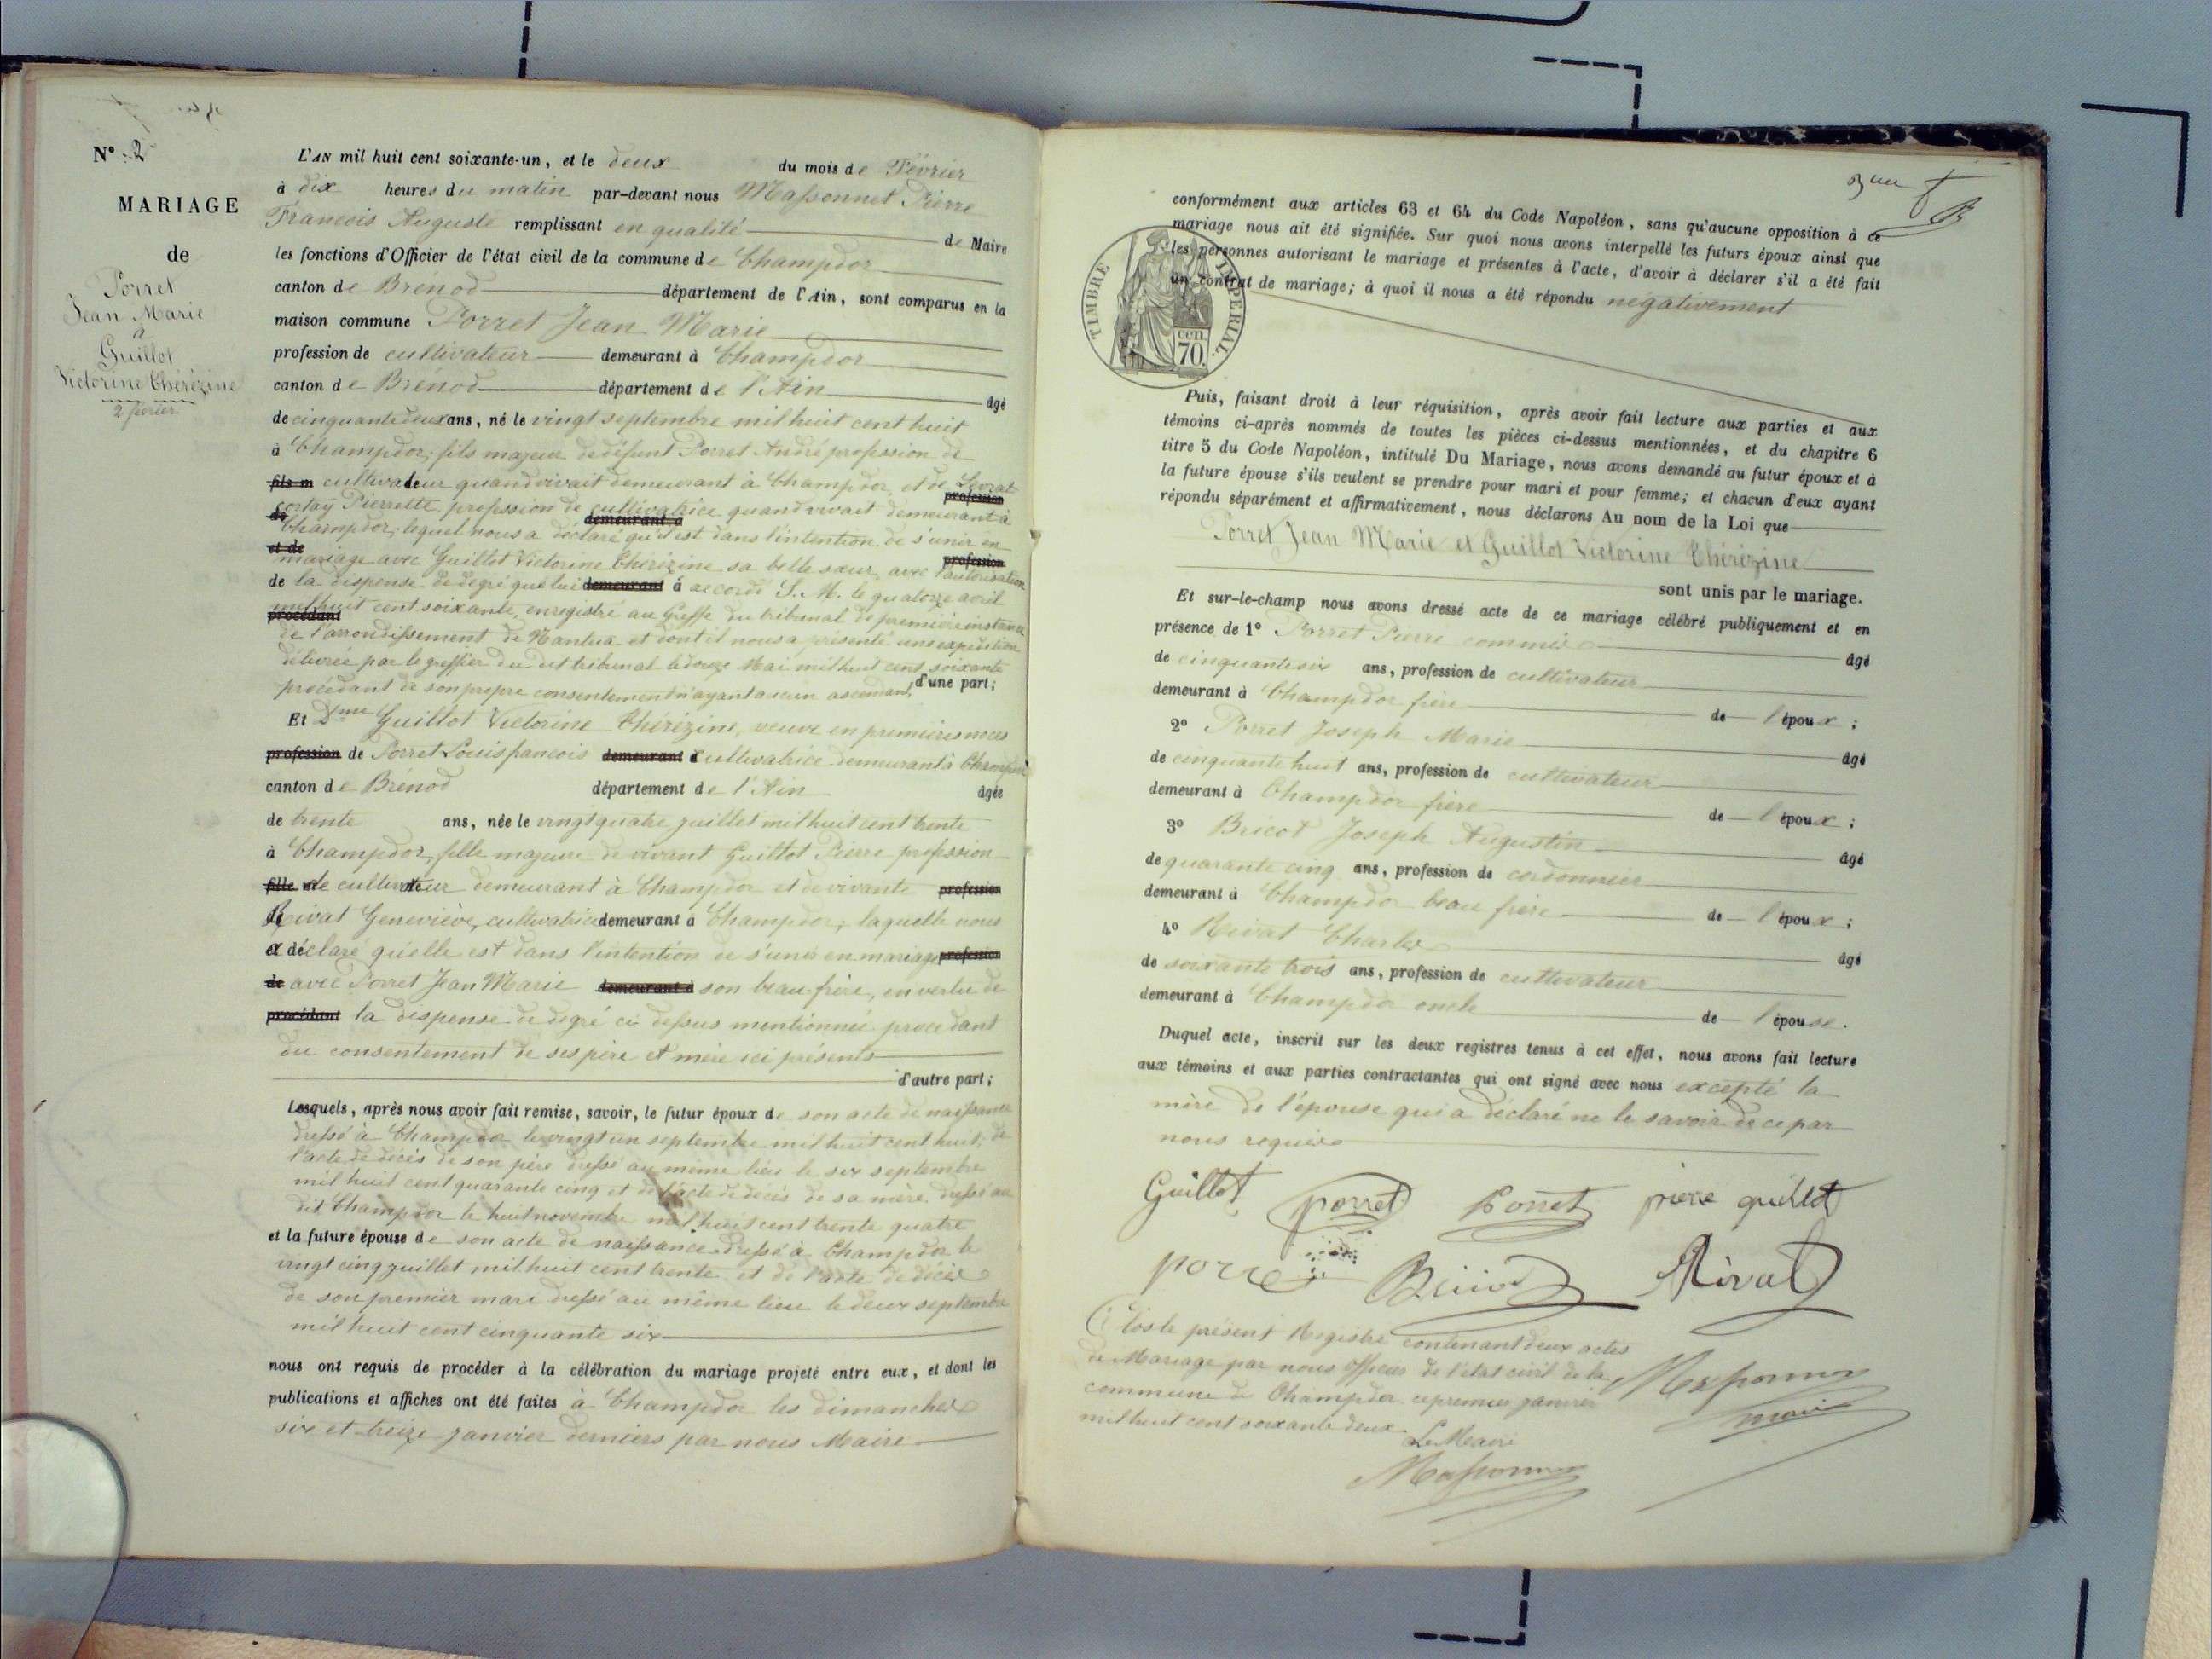 N° 2
MARIAGE
de
Porret
Jean Marie
à
Guillot
Victorine Thérézine
2 février
L'AN mil huit cent soixante-un, et le deux du mois de Février
à dix heures du matin par-devant nous Massonnet Pierre
Francois Auguste remplissant en qualité de Maire
les fonctions d'Officier de l'état civil de la commune de Champdor
canton de Brenod département de l'Ain, sont comparus en la
maison commune Porret Jean Marie
profession de cultivateur demeurant à Champdor
canton de Brénod département de l'Ain âgé
de cinquante deux ans, né le vingt septembre mil huit cent huit
à Champdor, fils majeur de défunt Porret André profession de
fils m cultivateur quand vivait demeurant à Champdor, et de Levrat
profession
cortay Pierrette, profession de cultivatrice quand vivait demeurant à
de demeurant à
Champdor, lequel nous a déclaré qu'il est dans l'intention de s'unir en
et de
mariage avec Guillot Victorine Thérézine sa belle sœur, avec l'autorisation
profession
de la dispense de degré que lui demeurant à accordé S. M. le quatorze avril
mil huit cent soixante, enregistré au Greffe du tribunal de première instance
procédant
de l'arrondissement de Nantua et dont il nous a présenté une expédition
délivrée par le greffier du dit tribunal le douze Mai mil huit cent soixante
procédant de son propre consentement n'ayant aucun ascendant, d'une part;
Et Dme Guillot Victorine Thérézine, veuve en premières noces
profession de Porret Louis francois demeurant cultivatrice demeurant à Champdor
canton de Brénod département de l'Ain âgée
de trente ans, née le vingt quatre juillet mil huit cent trente
à Champdor, fille majeure de vivant Guillot Pierre profession
fille de cultivateur demeurant à Champdor et de vivante profession
Rivat Geneviève, cultivatrice demeurant à Champdor, laquelle nous
a déclaré qu'elle est dans l'intention de s'unir en mariage profession
de avec Porret Jean Marie demeurant à son beau-frère, en vertu de
procédant la dispense de degré ci dessus mentionnée procédant
du consentement de ses père et mère ici présents
d'autre part;
Lesquels, après nous avoir fait remise, savoir, le futur époux de son acte de naissance
dressé à Champdor le vingt un septembre mil huit cent huit, de
l'acte de décès de son père dressé au même lieu le six septembre
mil huit cent quarante cinq et de l'acte de décès de sa mère dressé au
dit Champdor le huit novembre mil huit cent trente quatre
et la future épouse de son acte de naissance dressé à Champdor le
vingt cinq juillet mil huit cent trente et de l'acte de décès
de son premier mari dressé au même lieu le deux septembre
mil huit cent cinquante six
nous ont requis de procéder à la célébration du mariage projeté entre eux, et dont les
publications et affiches ont été faites à Champdor les dimanches
six et treize janvier derniers par nous Maire
conformément aux articles 63 et 64 du Code Napoléon, sans qu'aucune opposition à ce
mariage nous ait été signifiée. Sur quoi nous avons interpellé les futurs époux ainsi que
les personnes autorisant le mariage et présentes à l'acte, d'avoir à déclarer s'il a été fait
un contrat de mariage; à quoi il nous a été répondu négativement
TIMBRE IMPERIAL.
70 cen
Puis, faisant droit à leur réquisition, après avoir fait lecture aux parties et aux
témoins ci-après nommés de toutes les pièces ci-dessus mentionnées, et du chapitre 6
titre 5 du Code Napoléon, intitulé Du Mariage, nous avons demandé au futur époux et à
la future épouse s'ils veulent se prendre pour mari et pour femme; et chacun d'eux ayant
répondu séparément et affirmativement, nous déclarons Au nom de la Loi que
Porret Jean Marie et Guillot Victorine Thérézine
sont unis par le mariage.
Et sur-le-champ nous avons dressé acte de ce mariage célébré publiquement et en
présence de 1° Porret Pierre âgé
de cinquante six ans, profession de cultivateur
demeurant à Champdor frère de l'époux;
2° Porret Joseph Marie âgé
de cinquante huit ans, profession de cultivateur
demeurant à Champdor frère de l'époux;
3° Bricot Joseph Augustin âgé
de quarante cinq ans, profession de cordonnier
demeurant à Champdor beau frère de l'époux;
4° Rivat Charles âgé
de soixante trois ans, profession de cultivateur
demeurant à Champdor oncle de l'épouse.
Duquel acte, inscrit sur les deux registres tenus à cet effet, nous avons fait lecture
aux témoins et aux parties contractantes qui ont signé avec nous excepté la
mère de l'épouse qui a déclaré ne le savoir de ce par
nous requise
Guillot porret Porret piere guillot
porret Bricot Rivat
Clos le présent Registre contenant deux actes
de Mariage par nous officier de l'état civil de la
commune de Champdor ce premier janvier
mil huit cent soixante deux
Massonnet
maire
Le Maire
Massonnet